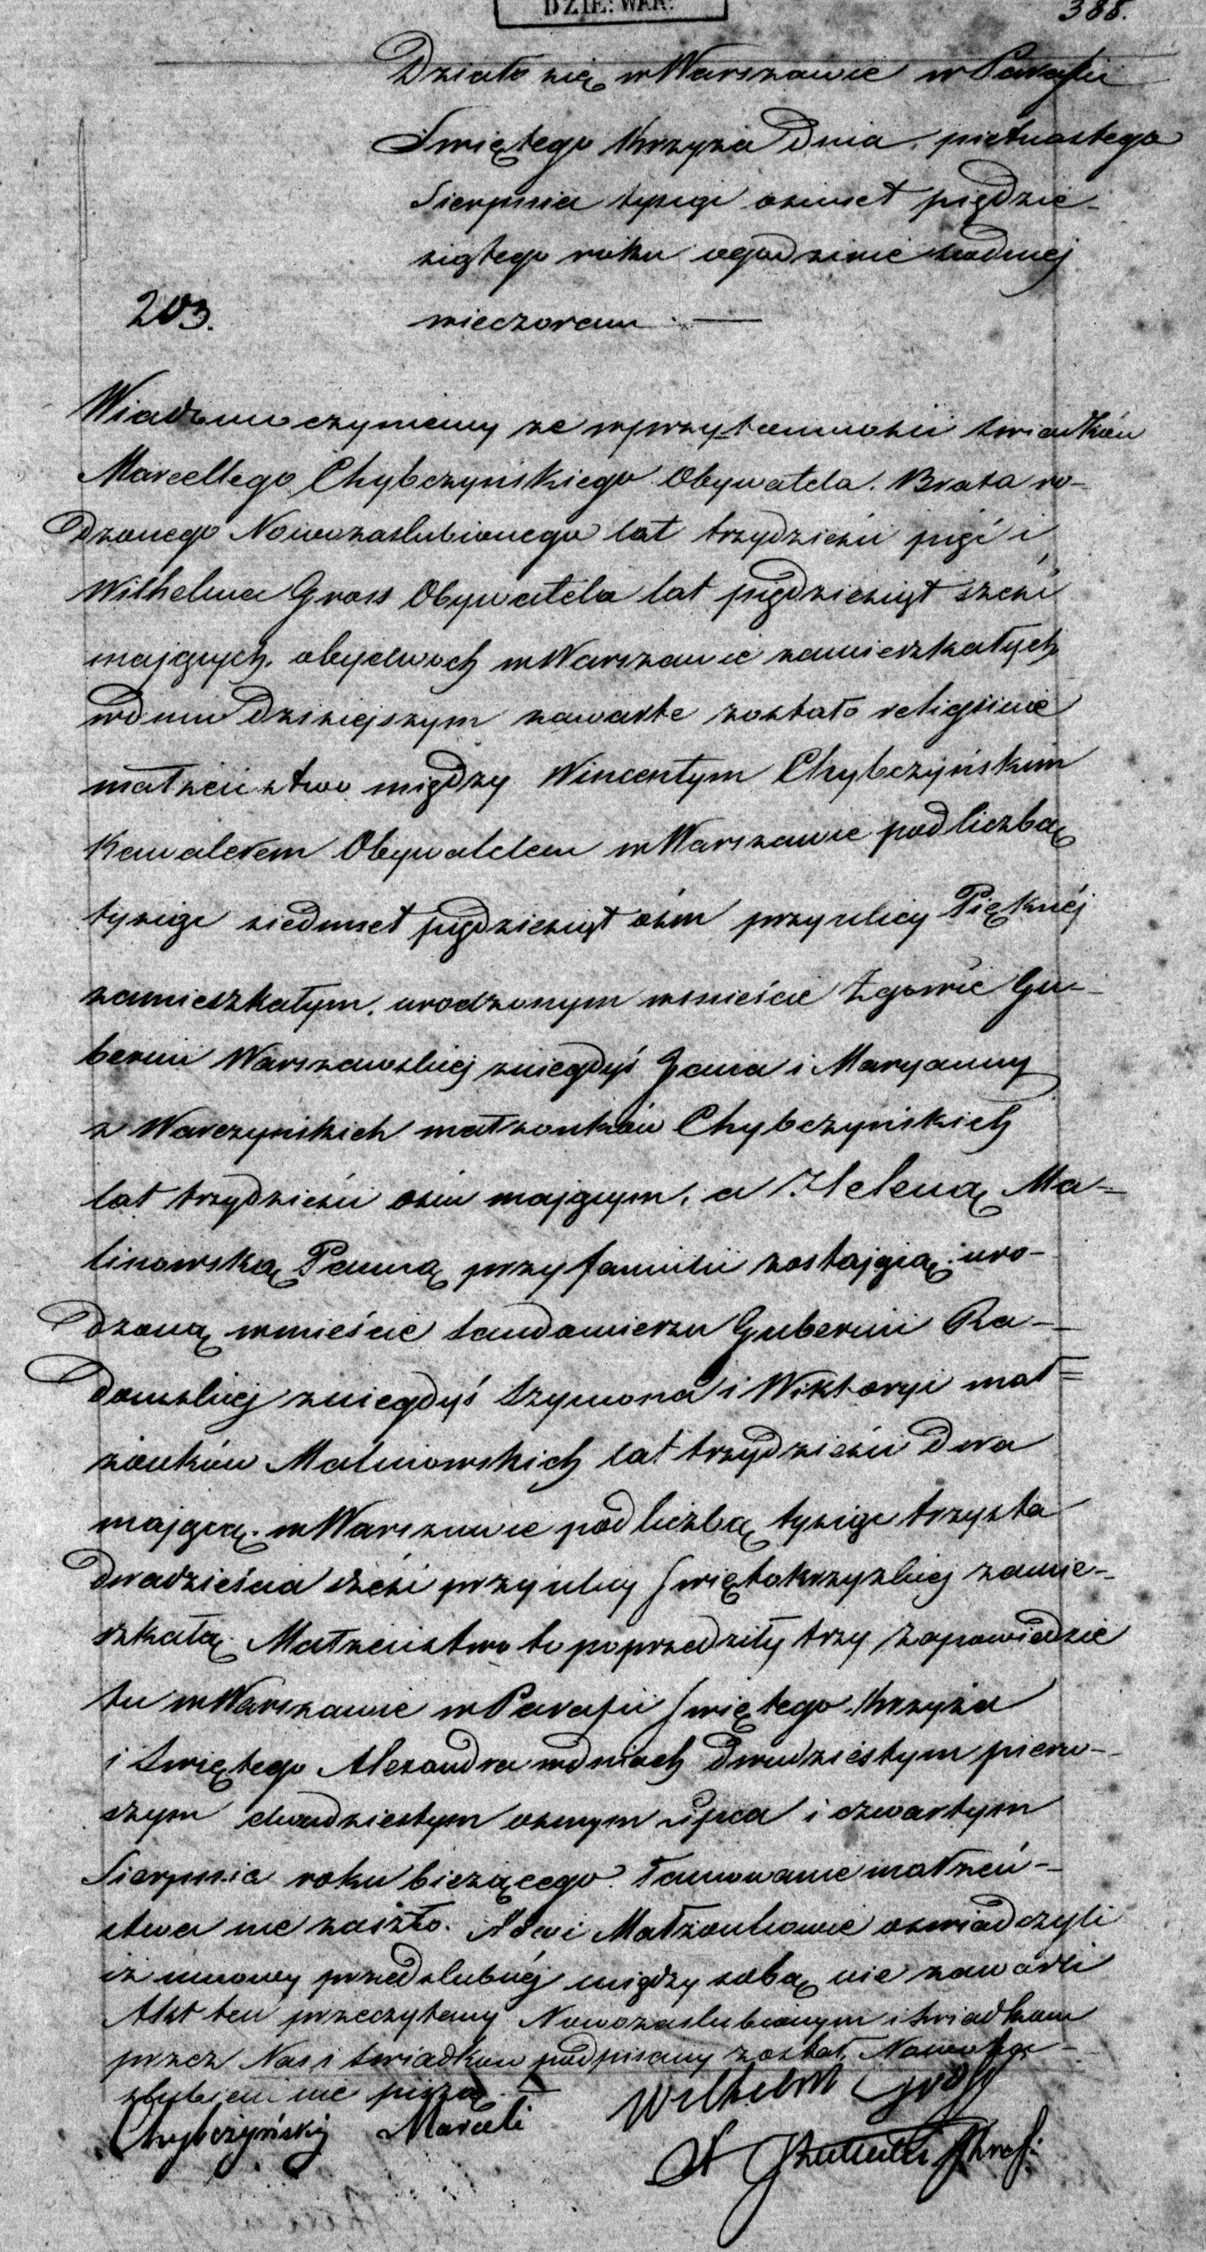 DZIE: WAR:
388.
Działo się w Warszawie w Parafii
Świętego Krzyża dnia piętnastego
Sierpnia tysiąc osmset piędzie-
siątego roku o godzinie siódmej
203.
wieczorem. —
Wiadomo czyniemy ze w przytomności świadków
Marcellego Chybczyńskiego Obywatela. Brata ro-
dzonego Nowozaslubionego lat trzydzieści pięć i
Wilhelma Gross Obywatela lat piędziesiąt sześć
mających, obydwóch w Warszawie zamieszkałych
w dniu dzisiejszym zawarte zostało religijnie
małżeństwo między Wincentym Chybczyńskim
Kawalerem Obywatelem w Warszawie pod liczbą
tysiąc siedmset pięдziesiąt ośm przy ulicy Pięknéj
zamieszkałym, urodzonym w mieście Zgowie Gu-
bernii Warszawskiej z niegdyś Jana i Maryanny
z Warczyńskich małżonków Chybczyńskich
lat trzydzieści ośm mającym, a Heleną Ma-
linowską Panną przy familii zostającą, uro-
dzoną w mieście Sandomierzu Gubernii Ra-
domskiej z niegdyś Szymona i Wiktoryi mał=
żonków Malinowskich lat trzydzieści dwa
mającą. w Warszawie pod liczbą tysiąc trzysta
dwadzieścia sześć przy ulicy Świętokrzyzkiej zamie-
szkałą. Małżeństwo to poprzedziły trzy zapowiedzie
tu w Warszawie w Parafii Świętego Krzyża
i Świętego Alexandra w dniach dwudziestym pierw-
szym dwudziestym osmym Lipca i czwartym
Sierpnia roku bieżącego. Tamowanie małżeń-
stwa nie zaszło. Nowi Małżonkowie oswiadczyli
iż umowy przedslubnéj między sobą nie zawarli
Akt ten przeczytany Nowozaslubionym i świadkom
przez Nas i świadków podpisany został, Nowoza-
slubieni nie piszą. —
Wilhelm Gross
Chybczyński Marceli